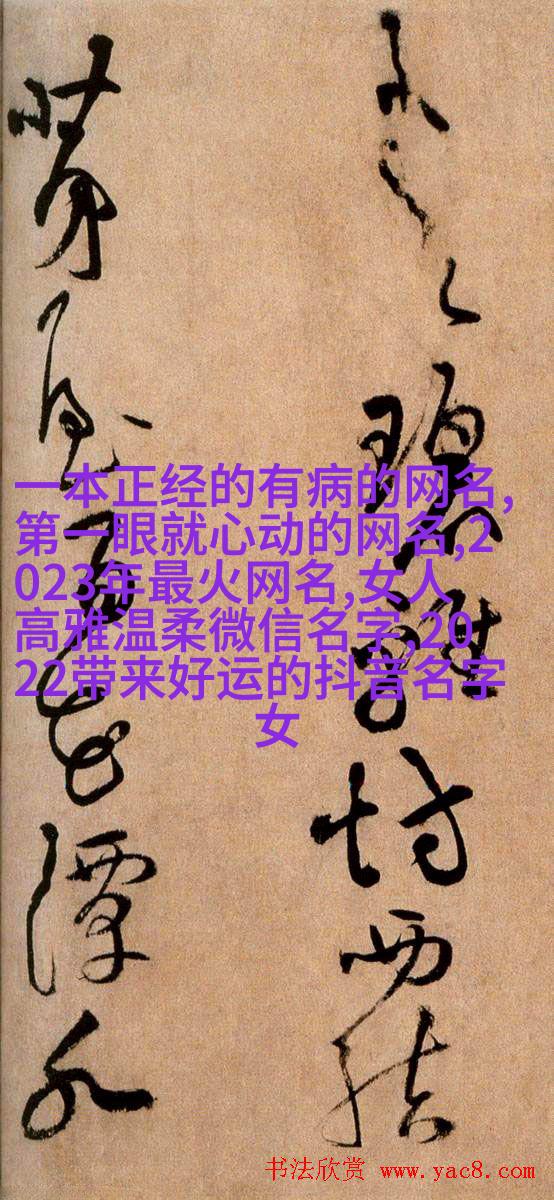 碧雞坊西結
茅屋百花潭水
一本正经的有病的网名,
第一眼就心动的网名,2
023年最火网名,女人
高雅温柔微信名字,20
22带来好运的抖音名字
女
书法欣赏 www.yac8.com